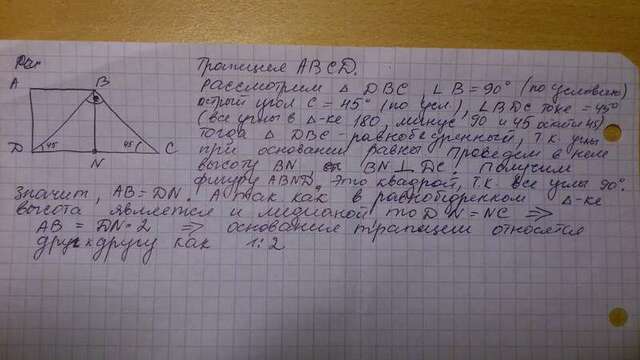 A B
Трапеция ABCD.
Рассмотрим Δ DBC, ∠B = 90° (по условию)
острый угол C = 45° (по усл), ∠BDC тоже = 45°
(все углы в Δ-ке 180, минус 90 и 45 остаётся 45)
Тогда Δ DBC - равнобедренный, т.к. углы
D 45 45 C
N
при основании равны Проведем в нем
высоту BN BN ⊥ DC. Получим
фигуру ABND. Это квадрат, т.к. все углы 90°.
Значит, AB = DN. А так как в равнобедренном Δ-ке
высота является и медианой то DN = NC ⇒
AB = DN · 2 ⇒ основания трапеции относятся
друг к другу как 1:2